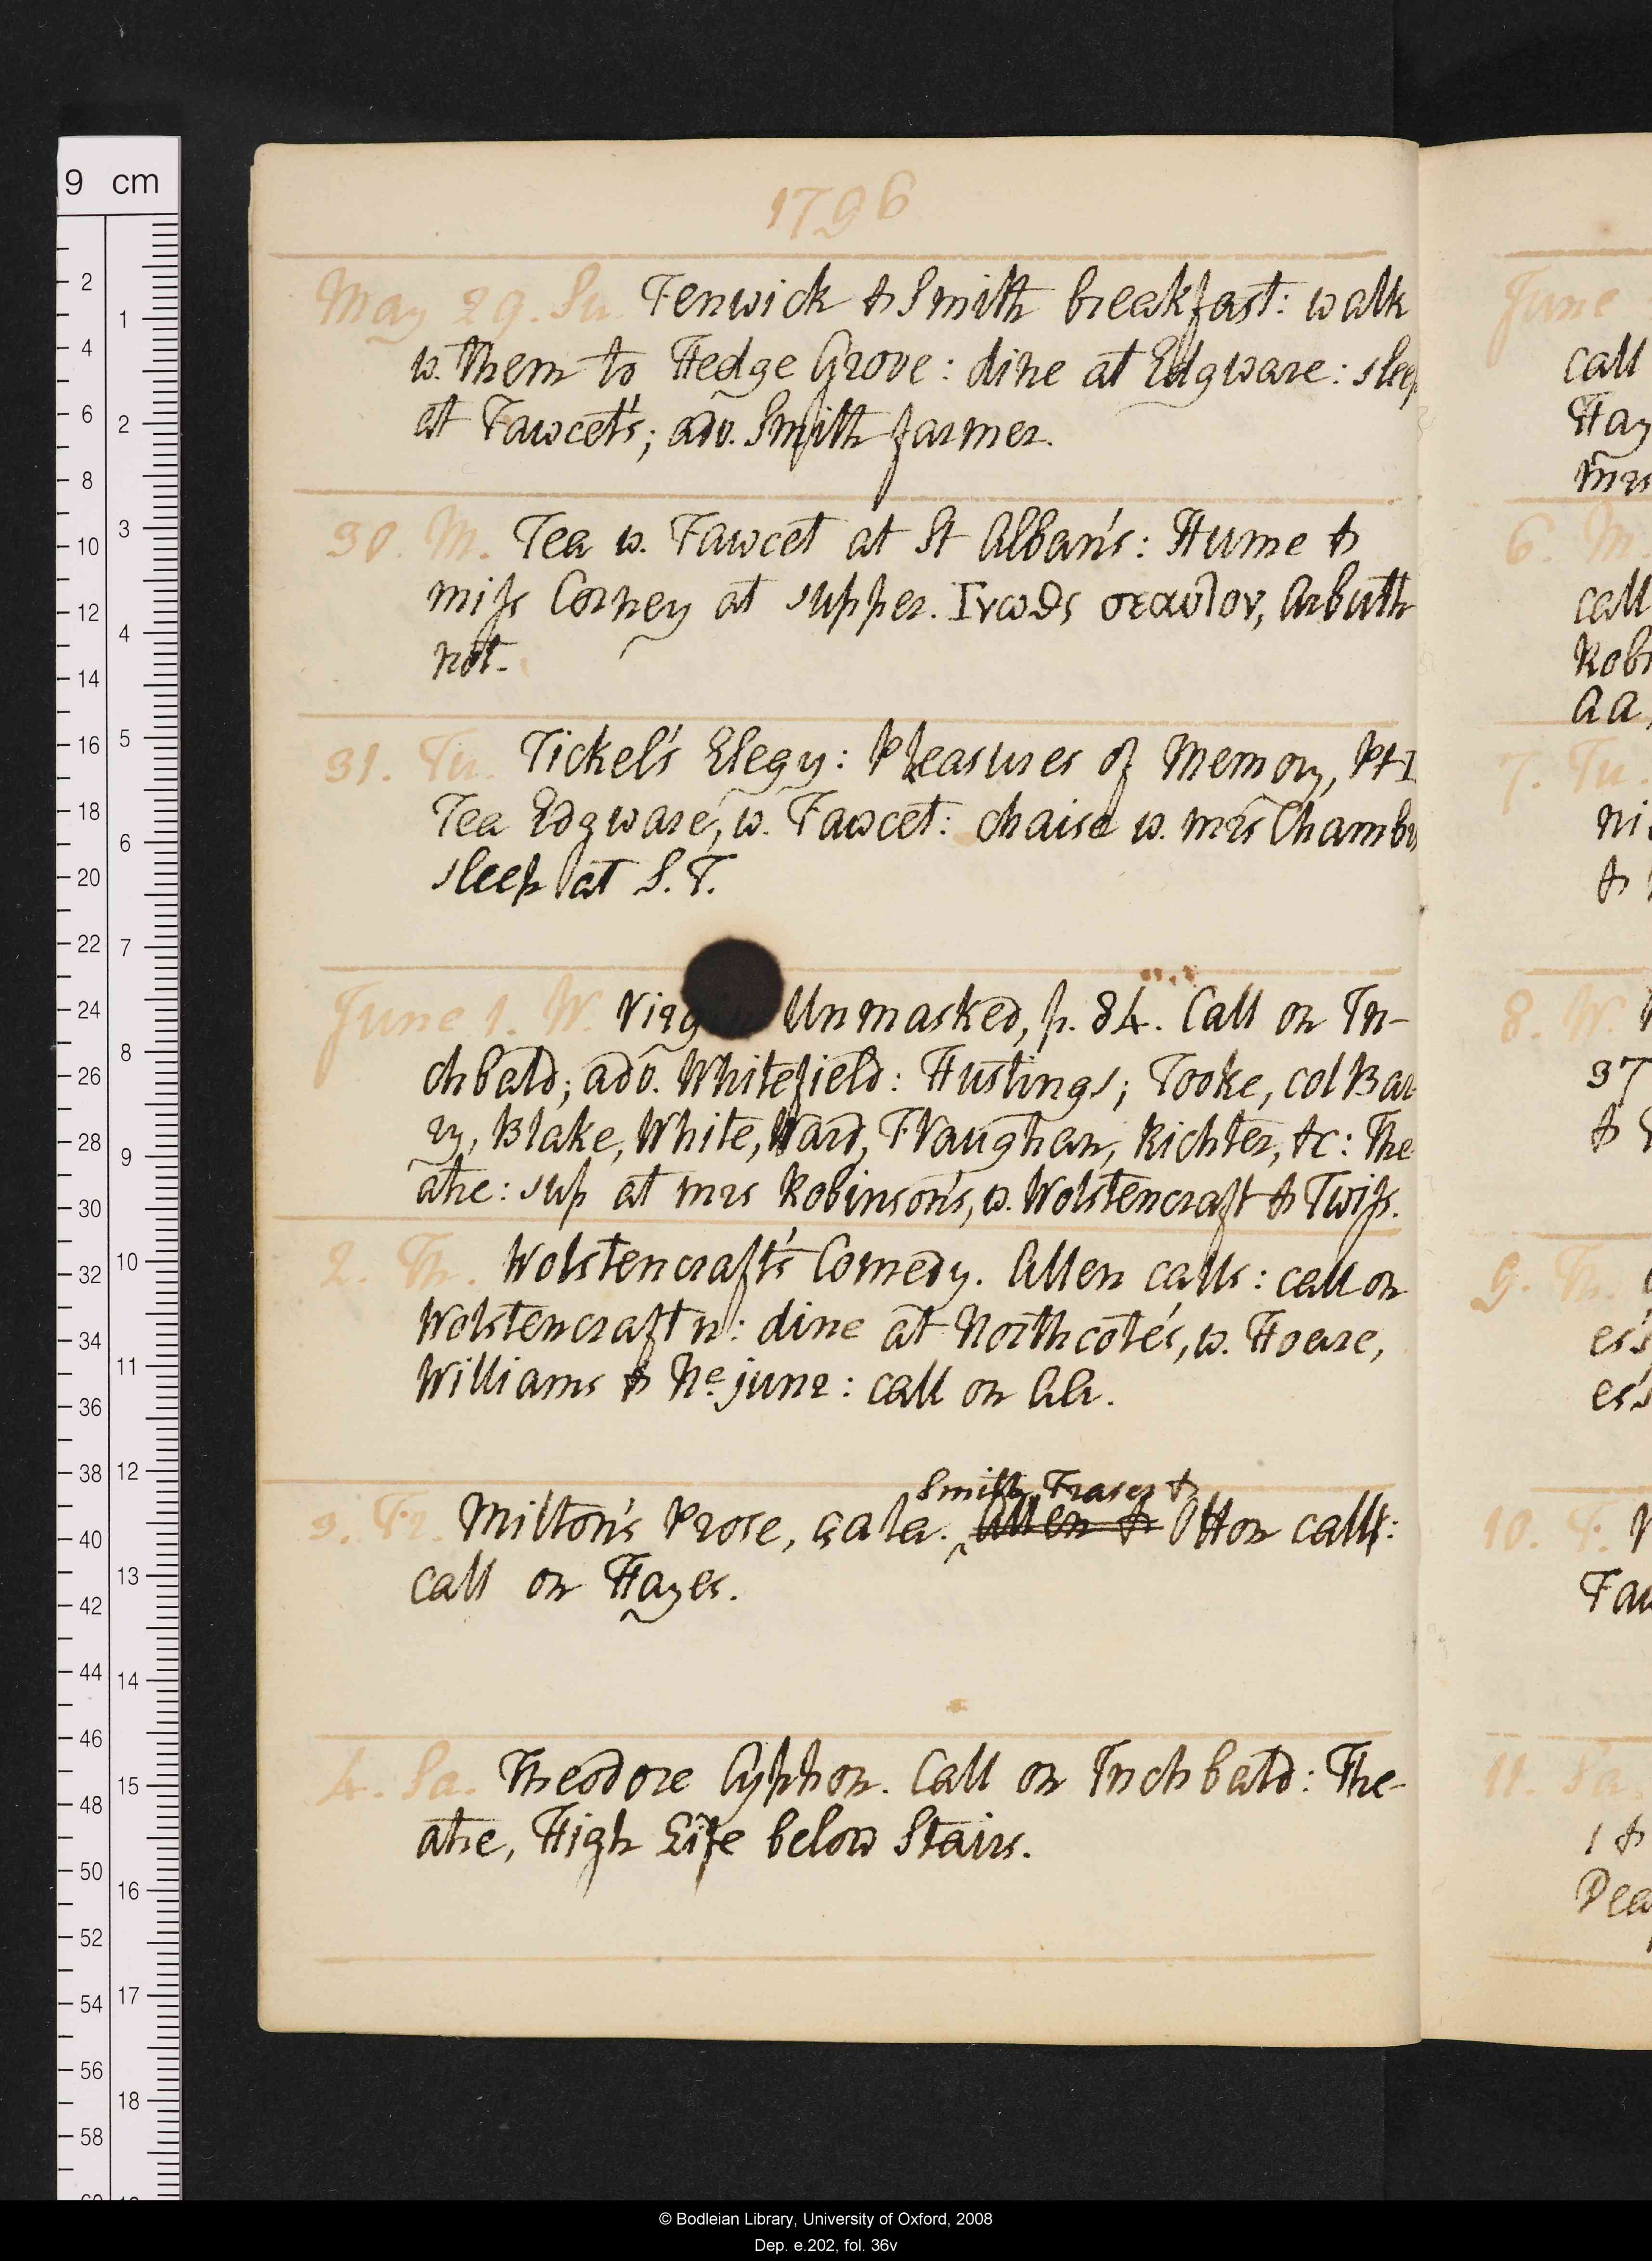 1796
May 29. Su. Fenwick & Smith breakfast: walk
w. them to Hedge Grove: dine at Edgware: sleep
at Fawcet's; adv. Smith farmer.
30. M. Tea w. Fawcet at St Alban's: Hume &
miss Corney at supper. Γνωθι σεαυτον, Arbuth
not.
31. Tu. Tickel's Elegy: Pleasures of Memory, Pt I
Tea Edgware, w. Fawcet: chaise w. mrs Chambrs
sleep at S. T.
June 1. W. Virgin Unmasked, p. 84. Call on In-
chbald; adv. Whitefield: Hustings; Tooke, col Bar
ry, Blake, White, Ward, F Vaughan, Richter, &c: The
atre: sup at mrs Robinson's, w. Wolstencraft & Twiss.
2. Th. Wolstencraft's Comedy. Allen calls: call on
Wolstencraft n: dine at Northcote's, w. Hoare,
Williams & Ne. junr: call on AA.
Smith, Fraser &
3. Fr. Milton's Prose, ça la. Allen & Otton calls:
call on Hayes.
4. Sa. Theodore Cyphon. Call on Inchbald: The-
atre, High Life below Stairs.
June
call
Hay
mrs
6. M.
call
Robi
AA,
7. Tu.
ni
&
8. W.
37
&
9. Th.
es's
es's
10. F.
Faw
11. Sa.
1 &
Pea
9 cm
2
4
6
8
10
12
14
16
18
20
22
24
26
28
30
32
34
36
38
40
42
44
46
48
50
52
54
56
58
1
2
3
4
5
6
7
8
9
10
11
12
13
14
15
16
17
18
© Bodleian Library, University of Oxford, 2008
Dep. e.202, fol. 36v